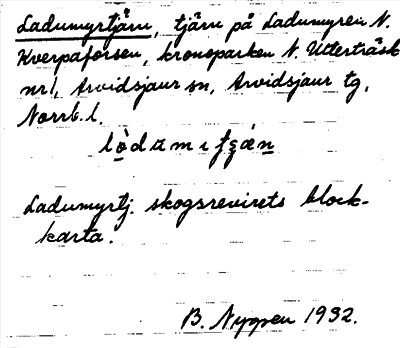 Ladumyrtjärn, tjärn på Ladumyren N.
Kverpaforsen, kronoparken N. Utterträsk
nr 1, Arvidsjaur sn, Arvidsjaur tg,
Norrb. l.
Ladumyrtj. skogsrevirets block-
karta.
B. Nyppen 1932.